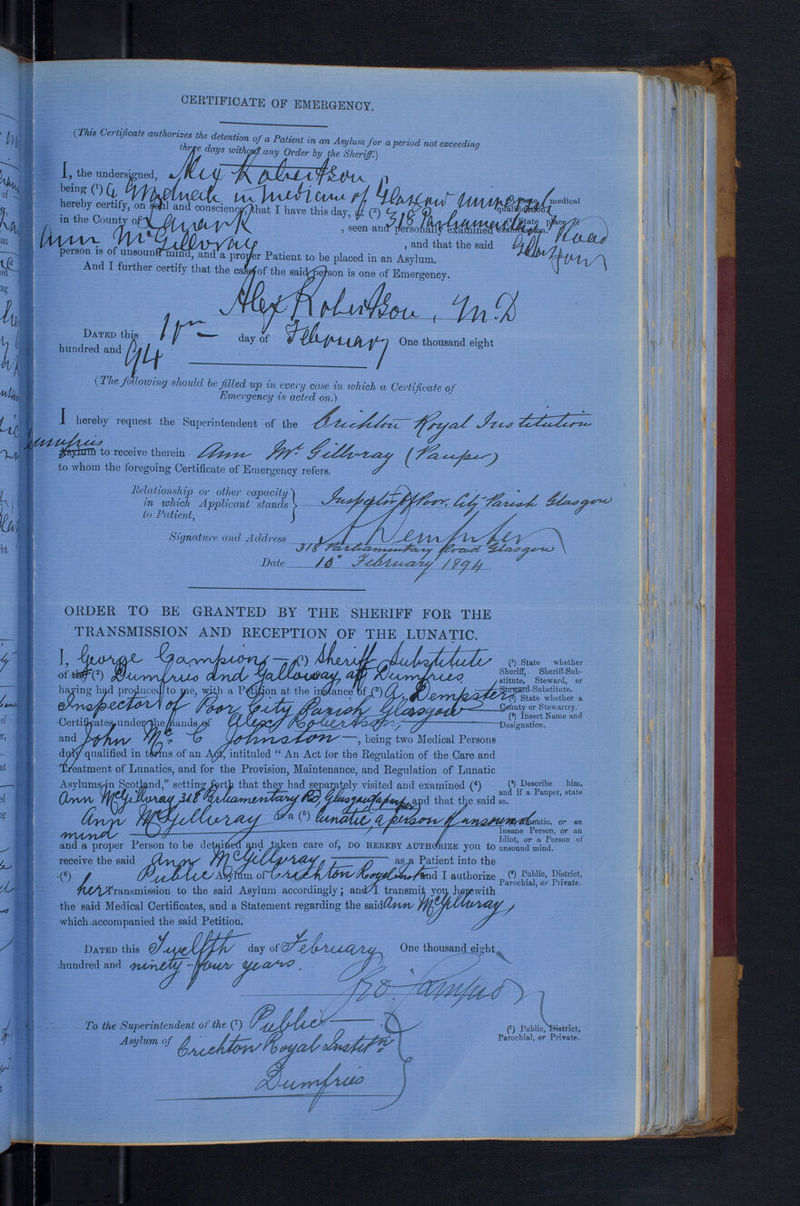 CERTIFICATE OF EMERGENCY.
(This Certificate authorizes the detention of a Patient in an Asylum for a period not exceeding
three days without any Order by the Sheriff.)
I, the undersigned, Alex Robertson
being (¹) a Graduate in Medicine of Glasgow medical
hereby certify, on soul and conscience, that I have this day, at (²) 318 Parliamentary Road
in the County of Lanark, seen and personally examined
Ann McGillvray, and that the said
person is of unsound mind, and a proper Patient to be placed in an Asylum.
And I further certify that the case of the said person is one of Emergency.
Alex Robertson, M.D
DATED this day of February One thousand eight
hundred and 94
(The following should be filled up in every case in which a Certificate of
Emergency is acted on.)
I hereby request the Superintendent of the Crichton Royal Institution
Dumfries
Asylum to receive therein Ann McGillvray (Pauper)
to whom the foregoing Certificate of Emergency refers.
Relationship or other capacity
in which Applicant stands
to Patient,
Inspector of Poor. City Parish Glasgow
Signature and Address A Dempster
318 Parliamentary Road Glasgow
Date 10" February 1894
ORDER TO BE GRANTED BY THE SHERIFF FOR THE
TRANSMISSION AND RECEPTION OF THE LUNATIC.
I, George Campion — (¹) Sheriff Substitute
of the (²) Dumfries and Galloway, at Dumfries
having had produced to me, with a Petition at the instance of (³) A. Dempster
Inspector of Poor City Parish Glasgow
Certificates under the hands of Alex Robertson
and John Mc C Johnston —, being two Medical Persons
duly qualified in terms of an Act, intituled "An Act for the Regulation of the Care and
Treatment of Lunatics, and for the Provision, Maintenance, and Regulation of Lunatic
Asylums in Scotland," setting forth that they had separately visited and examined (⁴)
Ann McGillvray 318 Parliamentary Rd, Glasgow, a pauper, and that the said
Ann McGillvray is a (⁵) lunatic, a person of unsound
mind
and a proper Person to be detained and taken care of, DO HEREBY AUTHORIZE YOU to
receive the said Ann McGillvray as a Patient into the
(⁶) Public Asylum of Crichton Royal Inst and I authorize
her Transmission to the said Asylum accordingly; and I transmit you herewith
the said Medical Certificates, and a Statement regarding the said Ann McGillvray,
which accompanied the said Petition.
DATED this Twelfth day of February One thousand eight
hundred and ninety-four years.
Geo. Campion
To the Superintendent of the (⁷) Public
Asylum of Crichton Royal Instit'n
Dumfries
(¹) State whether
Sheriff, Sheriff-Sub-
stitute, Steward, or
Steward-Substitute.
(²) State whether a
County or Stewartry.
(³) Insert Name and
Designation.
(⁴) Describe him,
and if a Pauper, state
so.
Lunatic, or an
Insane Person, or an
Idiot, or a Person of
unsound mind.
(⁶) Public, District,
Parochial, or Private.
(⁷) Public, District,
Parochial, or Private.